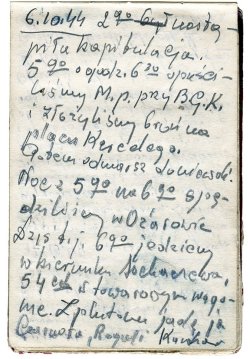 6.10.44 2go był nastą-
piła kapitulacja.
5go o godz. 6 30 opuści-
liśmy M.p. przy B.G.K.
i złożyliśmy broń na
placu Kercelego.
Potem odmarsz
Noc z 5go na 6go spę-
dziliśmy w Ożarowie
Dziś tj. 6go jedziemy
w kierunku Sochaczewa,
54 ech w towarowym wago-
nie. Z plutonu jadę ja
Czarnota, Kumor